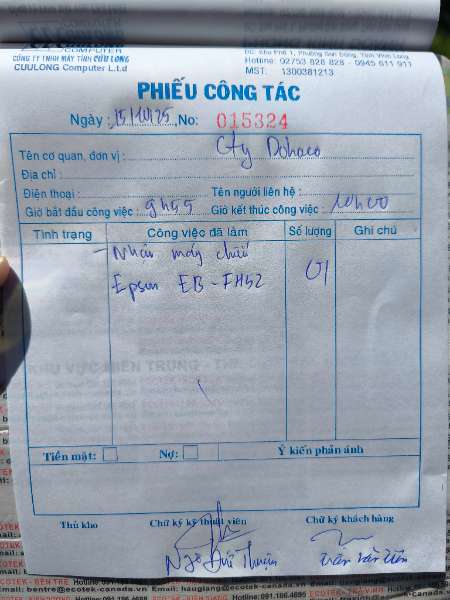 COMPUTER
CÔNG TY TNHH MÁY TÍNH CỬU LONG
CUULONG Computer L.t.d
ĐC: Khu Phố 1, Phường Sơn Đông, Tỉnh Vĩnh Long
Hotline: 92753 828 828 - 0945 611 911
MST: 1300381213
PHIẾU CÔNG TÁC
Ngày: 15/10/25, No: 015324
Tên cơ quan, đơn vị: Cty Dohaco
Địa chỉ:
Điện thoại: Tên người liên hệ:
Giờ bắt đầu công việc: 9h55 Giờ kết thúc công việc: 10h00
Tình trạng Công việc đã làm Số lượng Ghi chú
- Nhận máy chiếu
Epson EB-FH52 01
Tiền mặt: Nợ: Ý kiến phản ánh
Thủ kho Chữ ký kỹ thuật viên Chữ ký khách hàng
Ngô Đức Thuận Trần Văn